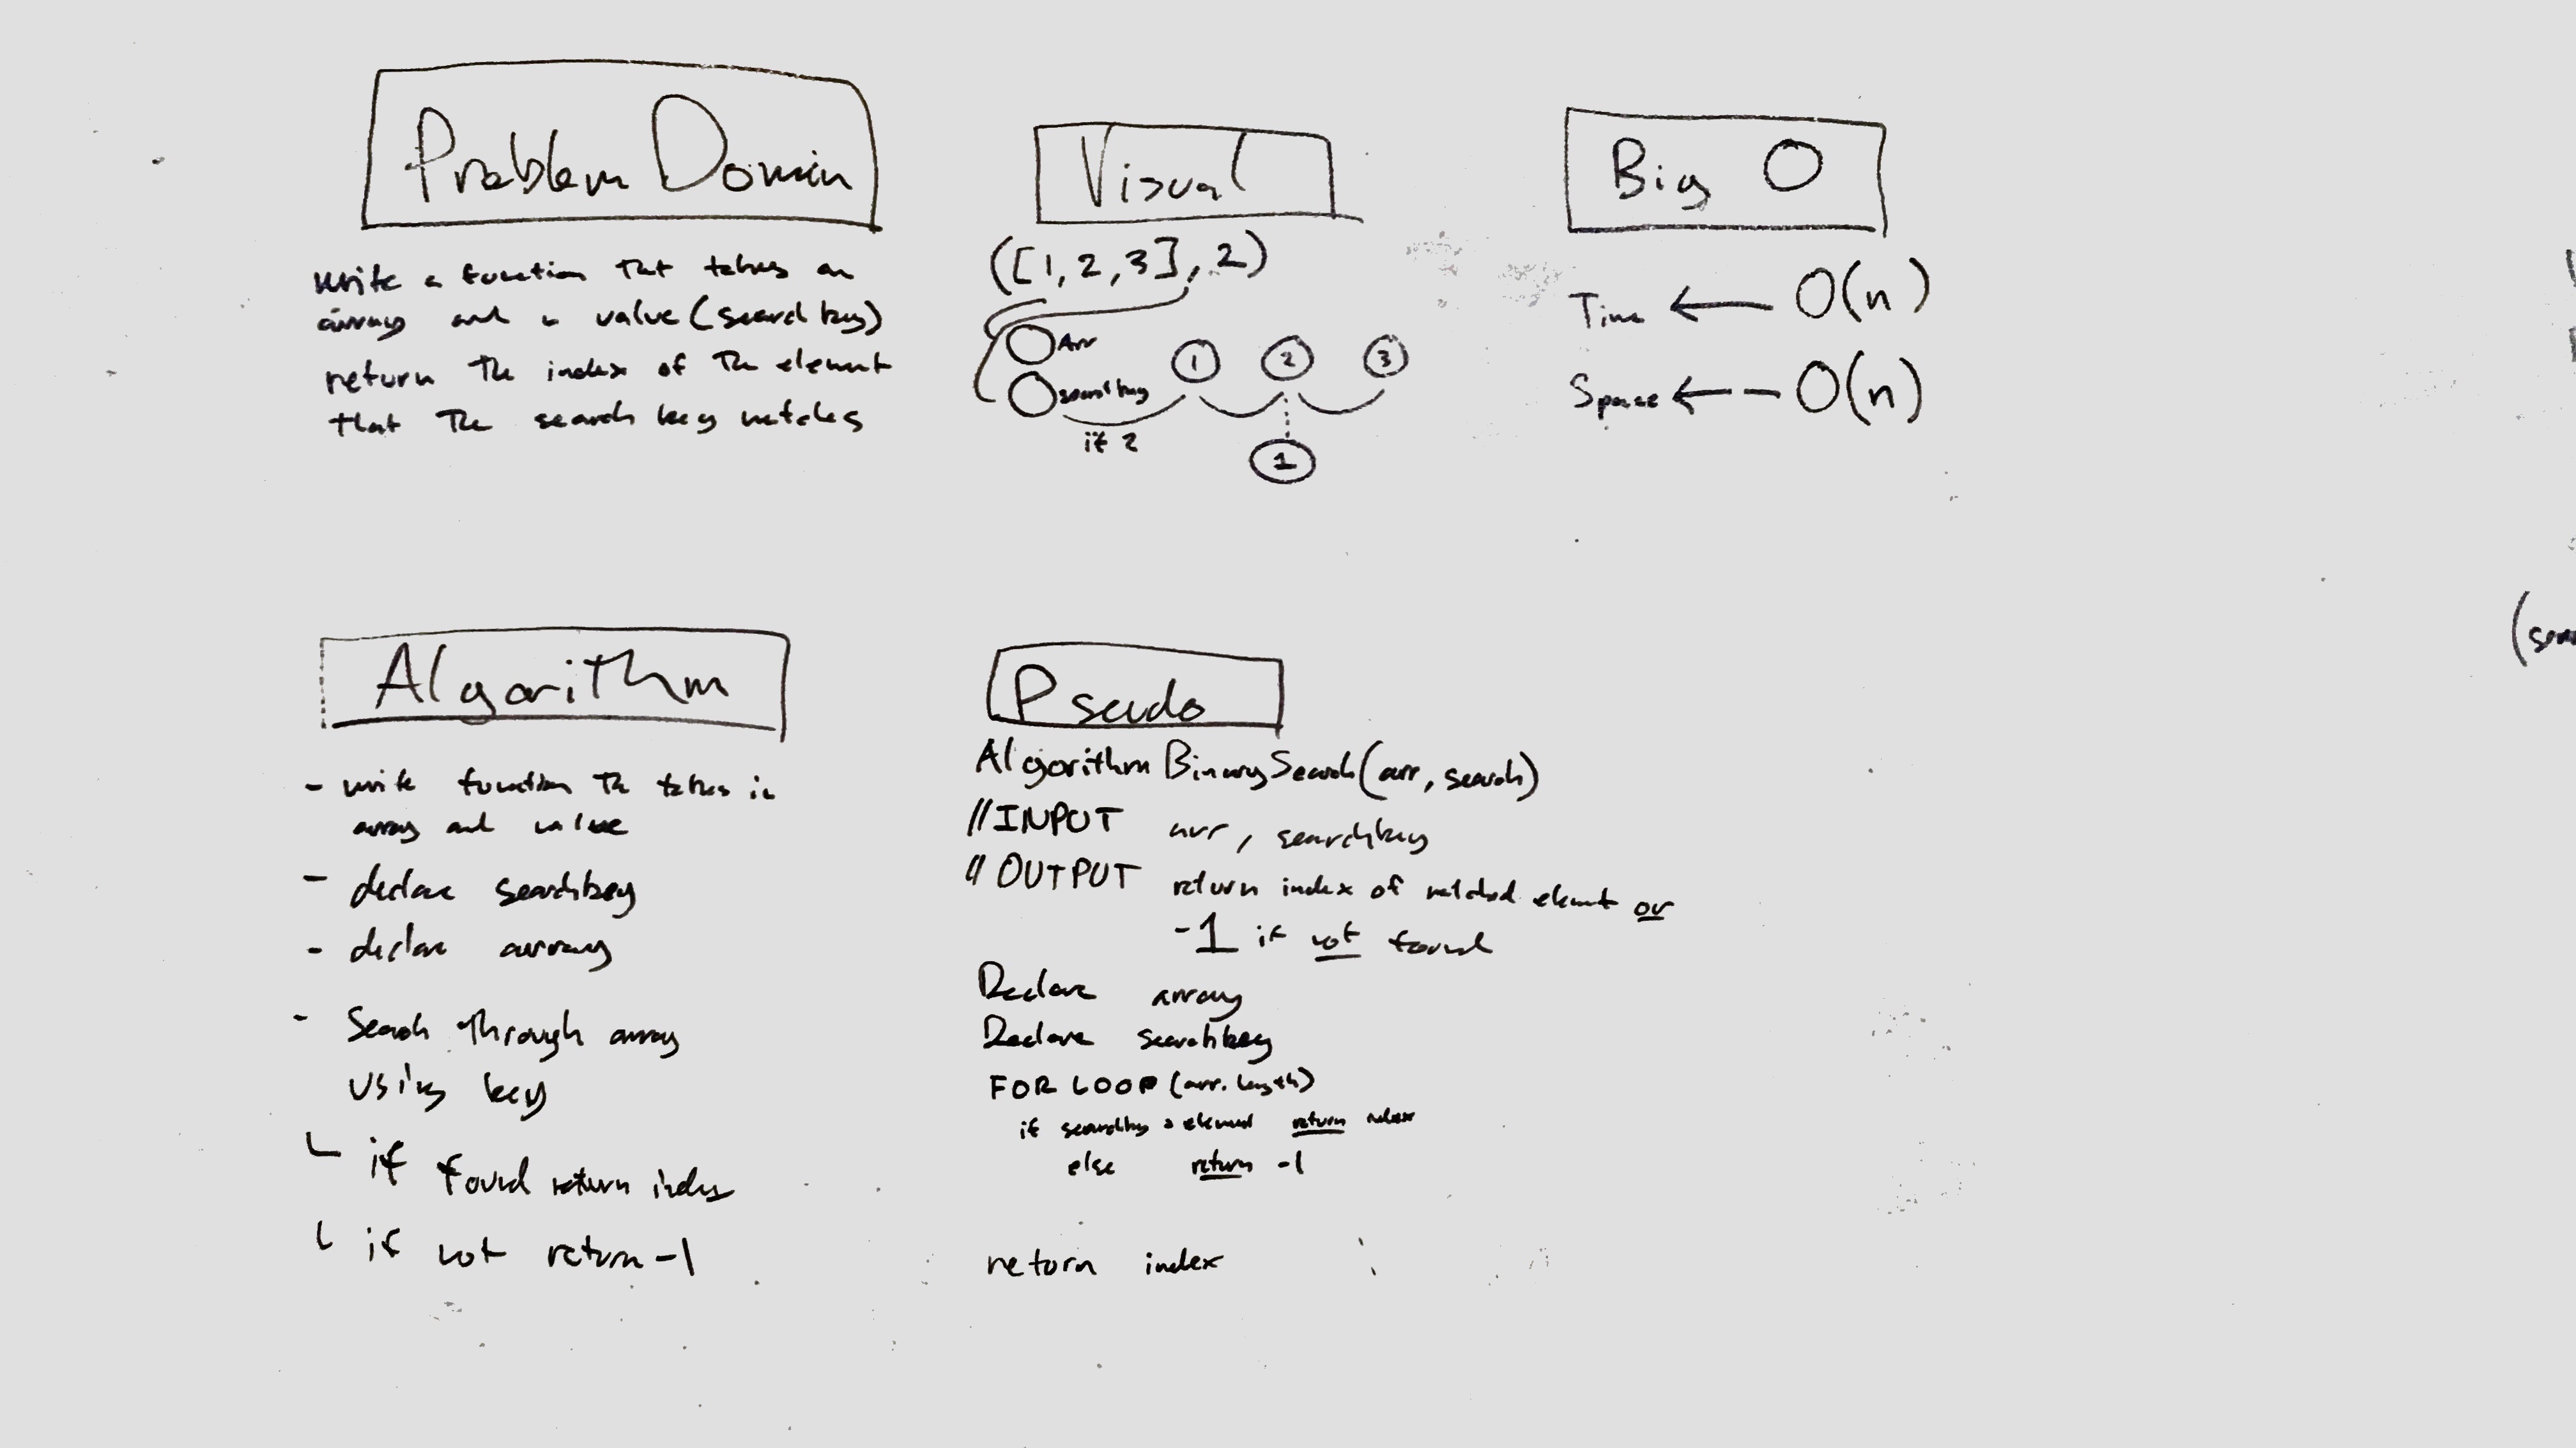 Problem Domain
write a function that takes an
array and a value (search key)
return the index of the element
that the search key matches
Visual
([1, 2, 3], 2)
Arr
searchkey
1 2 3
if 2
1
Big O
Time ← O(n)
Space ← — O(n)
(sear
Algorithm
- write function the takes in
array and value
- declare searchkey
- declare array
- Search through array
using key
if found return index
if not return -1
Pseudo
Algorithm BinarySearch(arr, search)
//INPUT arr, searchkey
//OUTPUT return index of matched element or
-1 if not found
Declare array
Declare searchkey
FOR LOOP (arr.length)
if searchkey = element return index
else return -1
return index